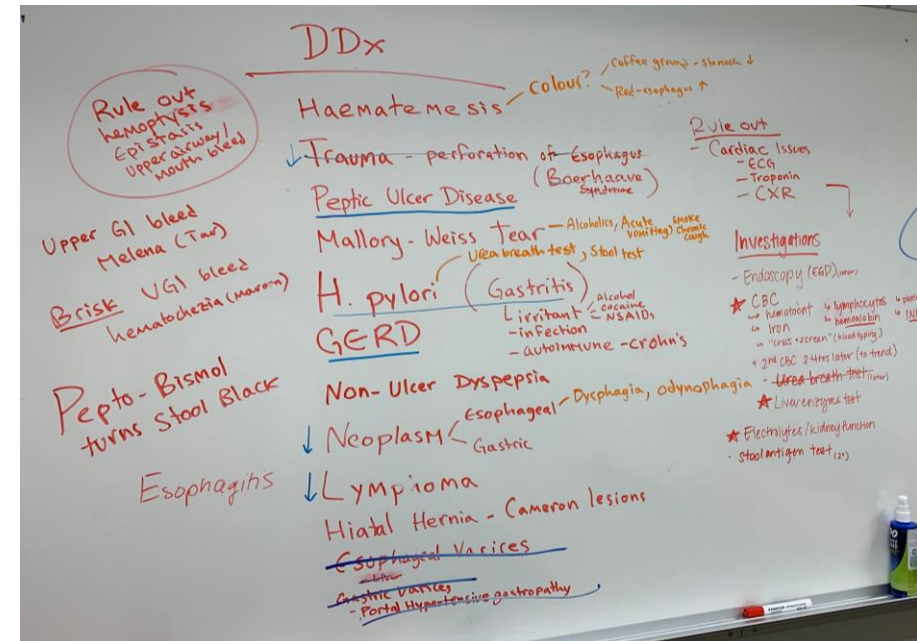 DDx
Rule out
hemoptysis
Epistaxis
Upper airway/
Mouth bleed
Upper GI bleed
Melena (Tar)
Brisk UGI bleed
hematochezia (maroon)
Pepto-Bismol
turns Stool Black
Esophagitis
Haematemesis
Colour?
Coffee ground - Stomach ↓
Red-esophagus ↑
↓ Trauma - perforation of Esophagus
(Boerhaave
Syndrome)
Peptic Ulcer Disease
Mallory-Weiss Tear - Alcoholics, Acute
vomiting)
smoke
chronic
cough
Urea breath test, Stool test
H. pylori (Gastritis)
irritant
Alcohol
cocaine
NSAIDs
- infection
- autoimmune - crohn's
GERD
Non-Ulcer Dyspepsia
↓ Neoplasm
Esophageal
Dysphagia, odynophagia
Gastric
↓ Lympioma
Hiatal Hernia - Cameron lesions
Esophageal Varices
Gastric Varices
- Portal Hypertensive gastropathy
Rule out
- Cardiac Issues
- ECG
- Troponin
- CXR
Investigations
- Endoscopy (EGD) (later)
★ CBC
↳ hematocrit ↳ lymphocytes
↳ Iron ↳ hemoglobin
↳ "cross + screen" (blood typing)
+ 2nd CBC 24hrs later (to trend)
- Urea breath test (later)
★ Liver enzyme test
★ Electrolytes/kidney function
- Stool antigen test (2°)